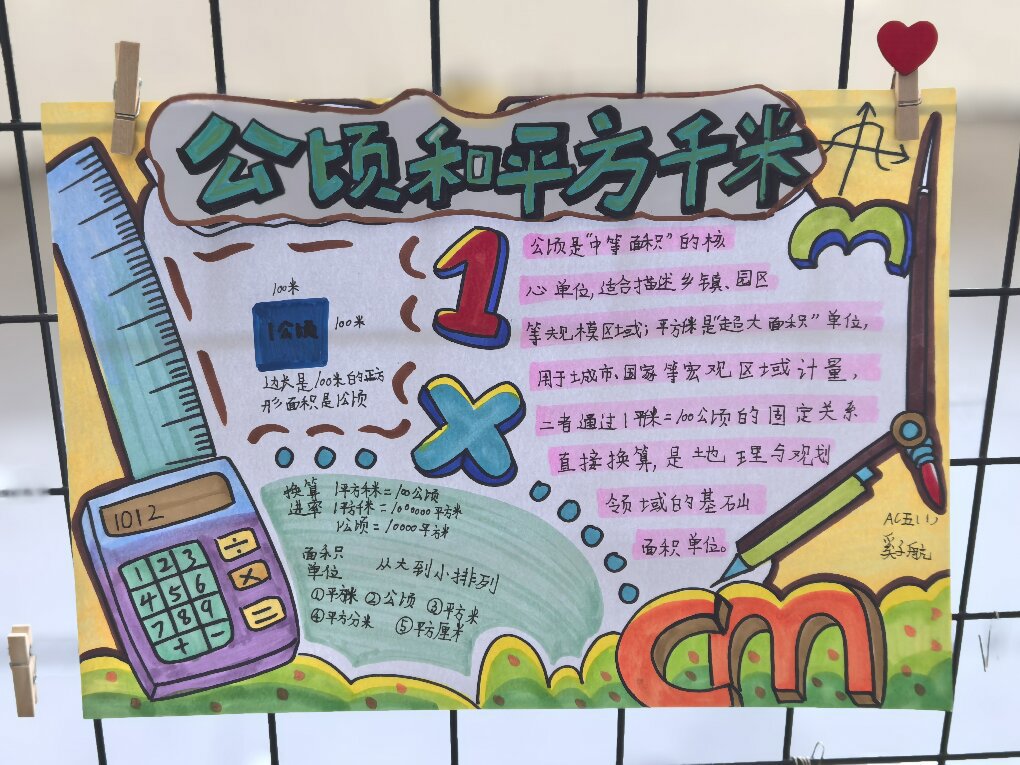 公顷和平方千米
1
m
100米
1公顷
100米
边长是100米的正方
形面积是1公顷
x
公顷是“中等面积”的核
心单位,适合描述乡镇、园区
等大规模区域;平方千米是“超大面积”单位,
用于城市、国家等宏观区域计量,
二者通过1平方千米=100公顷的固定关系
直接换算,是土地理与观划
领域的基础
面积单位。
换算
进率
1平方千米=100公顷
1平方千米=1000000平方米
1公顷=10000平方米
面积
单位
从大到小排列
①平方千米 ②公顷 ③平方米
④平方分米 ⑤平方厘米
1012
1 2 3
4 5 6
7 8 9
+ -
÷
×
=
AC五(1)
奚子航
cm